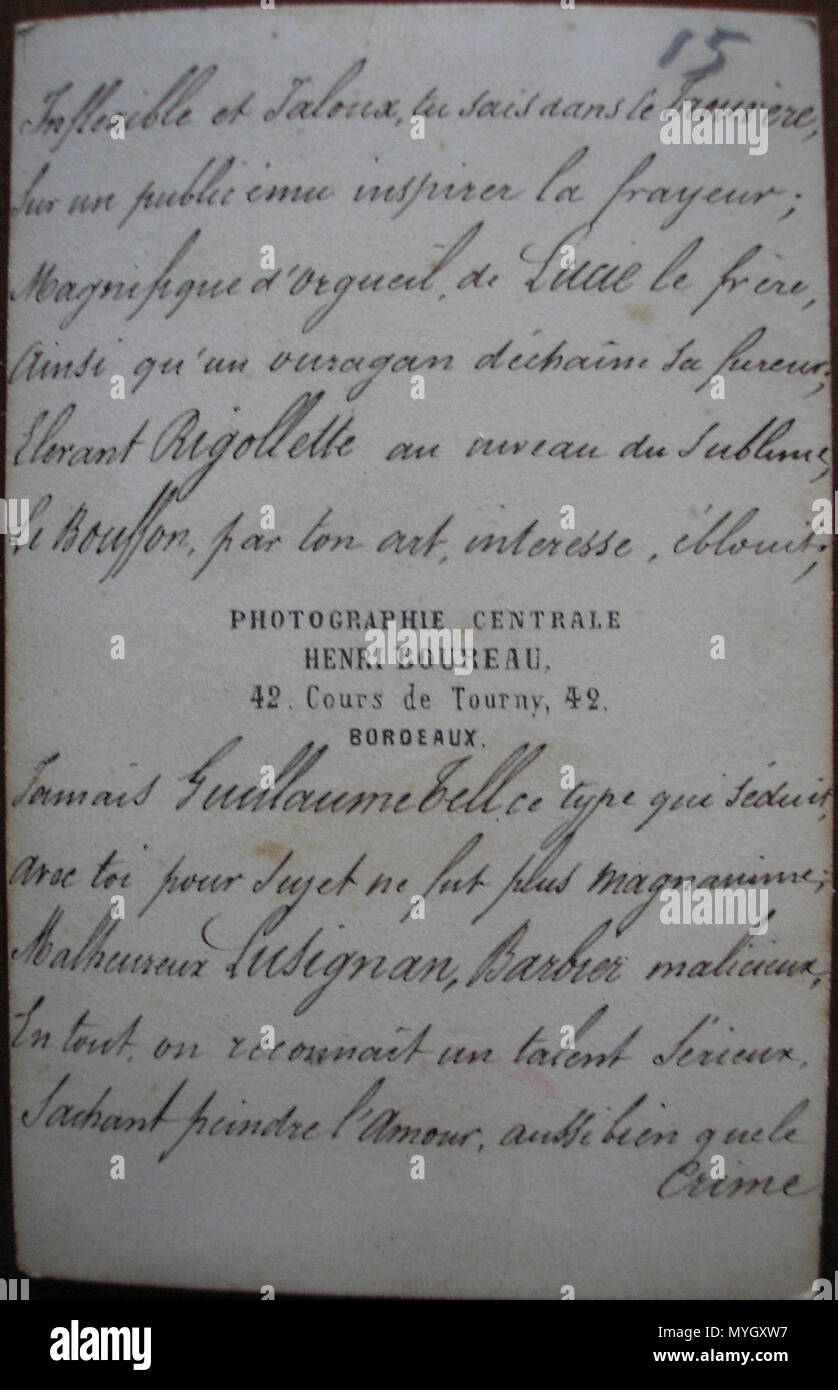 15
Inflexible et Jaloux, tu sais dans le Trouvère,
Sur un public ému inspirer la frayeur;
Magnifique d'orgueil, de Lucie le frère,
Ainsi qu'un ouragan déchaîne sa fureur;
Elevant Rigollette au niveau du sublime,
Le Bouffon, par ton art, interesse, éblouit;
PHOTOGRAPHIE CENTRALE
HENRI BOUREAU,
42. Cours de Tourny, 42.
BORDEAUX.
Jamais Guillaume Tell ce type qui séduit,
avec toi pour sujet ne fut plus magnanime;
Malheureux Lusignan, Barbier malicieux,
En tout, on reconnait un talent sérieux,
Sachant peindre l'Amour, aussi bien que le
Crime
alamy
Image ID: MYGXW7
www.alamy.com